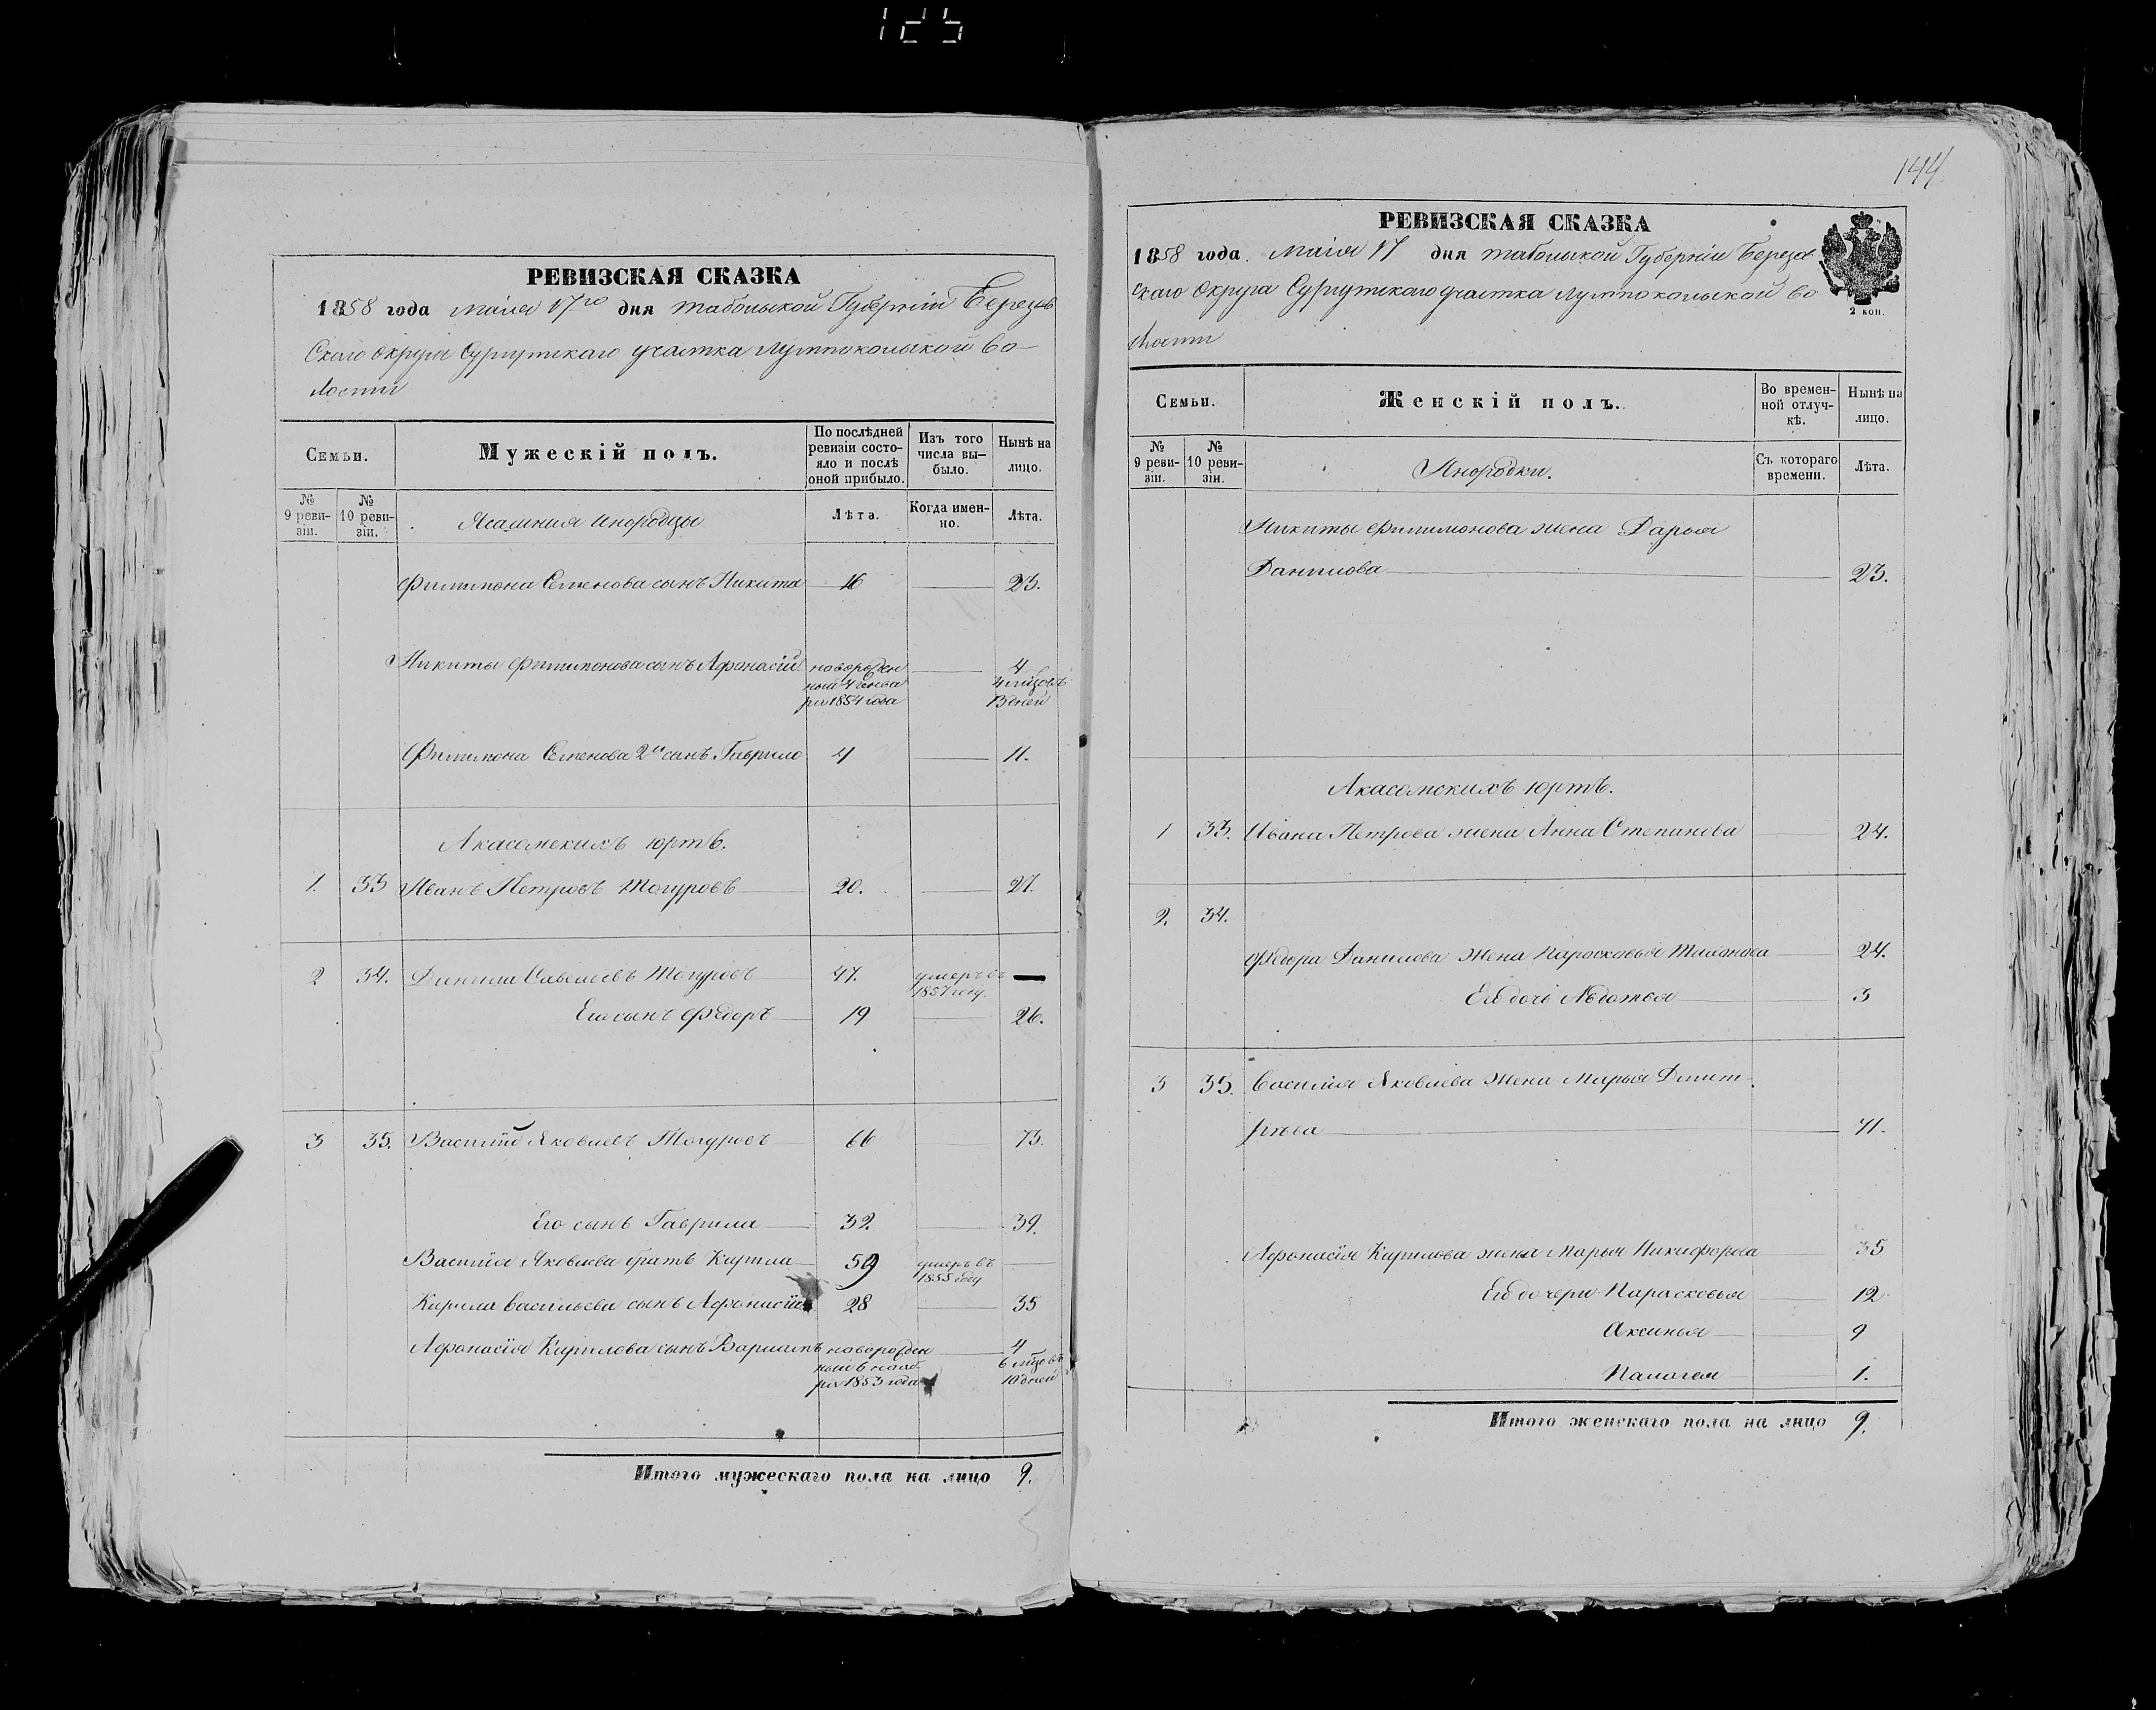 125
РЕВИЗСКАЯ СКАЗКА
1858 года маія 17го дня Тобольской Губерніи Березов
скаго округа Сургутскаго участка Лумпокольской во-
лости
Семьи.
Мужескій полъ.
По послѣдней ревизіи состояло и послѣ оной прибыло.
Изъ того числа выбыло.
Нынѣ на лицо.
№ 9 ревизіи.
№ 10 ревизіи.
Ясашныя инородцы
Лѣта.
Когда именно.
Лѣта.
Филимона Семенова сынъ Никита 16 23.
Никиты Филимонова сынъ Афонасій новорожден 4
ный 4 генва 4 мѣсцовъ
ря 1854 года 13 дней
Филимона Семенова 2й сынъ Гаврило 4 11.
Акасомскихъ юртъ.
1. 33 Иванъ Петровъ Могуровъ 20. 27.
2 34. Данила Савельевъ Могуровъ 47. умеръ въ
1857 году.
Его сынъ Федоръ 19 26.
3 35. Василій Яковлевъ Могуровъ 66 73.
Его сынъ Гаврила 32. 39.
Василія Яковлева братъ Кирила 59 умеръ въ
1855 году
Кирила Васильева сынъ Афонасій 28 35
Афонасія Кирилова сынъ Варламъ новорожден 4
ный 6 нояб. 6 мѣсцовъ
ря 1853 года 10 дней
Итого мужескаго пола на лицо 9.
144.
РЕВИЗСКАЯ СКАЗКА
1858 года. маія 17 дня Тобольской Губерніи Березов
скаго округа Сургутскаго участка Лумпокольской во
лости
2 коп.
Семьи.
Женскій полъ.
Во временной отлучкѣ.
Нынѣ на лицо.
№ 9 ревизіи.
№ 10 ревизіи.
Инородки.
Съ котораго времени.
Лѣта.
Никиты Филимонова жена Дарья
Данилова 23.
Акасомскихъ юртъ.
1 33. Ивана Петрова жена Анна Степанова 24.
2. 34.
Федора Данилова жена Парасковья 24.
Ея дочь Авдотья 3
3 35. Василія Яковлева жена Марья Дмит
ріева 41.
Афонасія Кирилова жена Марья Никифорова 35
Ея дочери Парасковья 12
Аксинья 9
Палагея 1.
Итого женскаго пола на лицо 9.